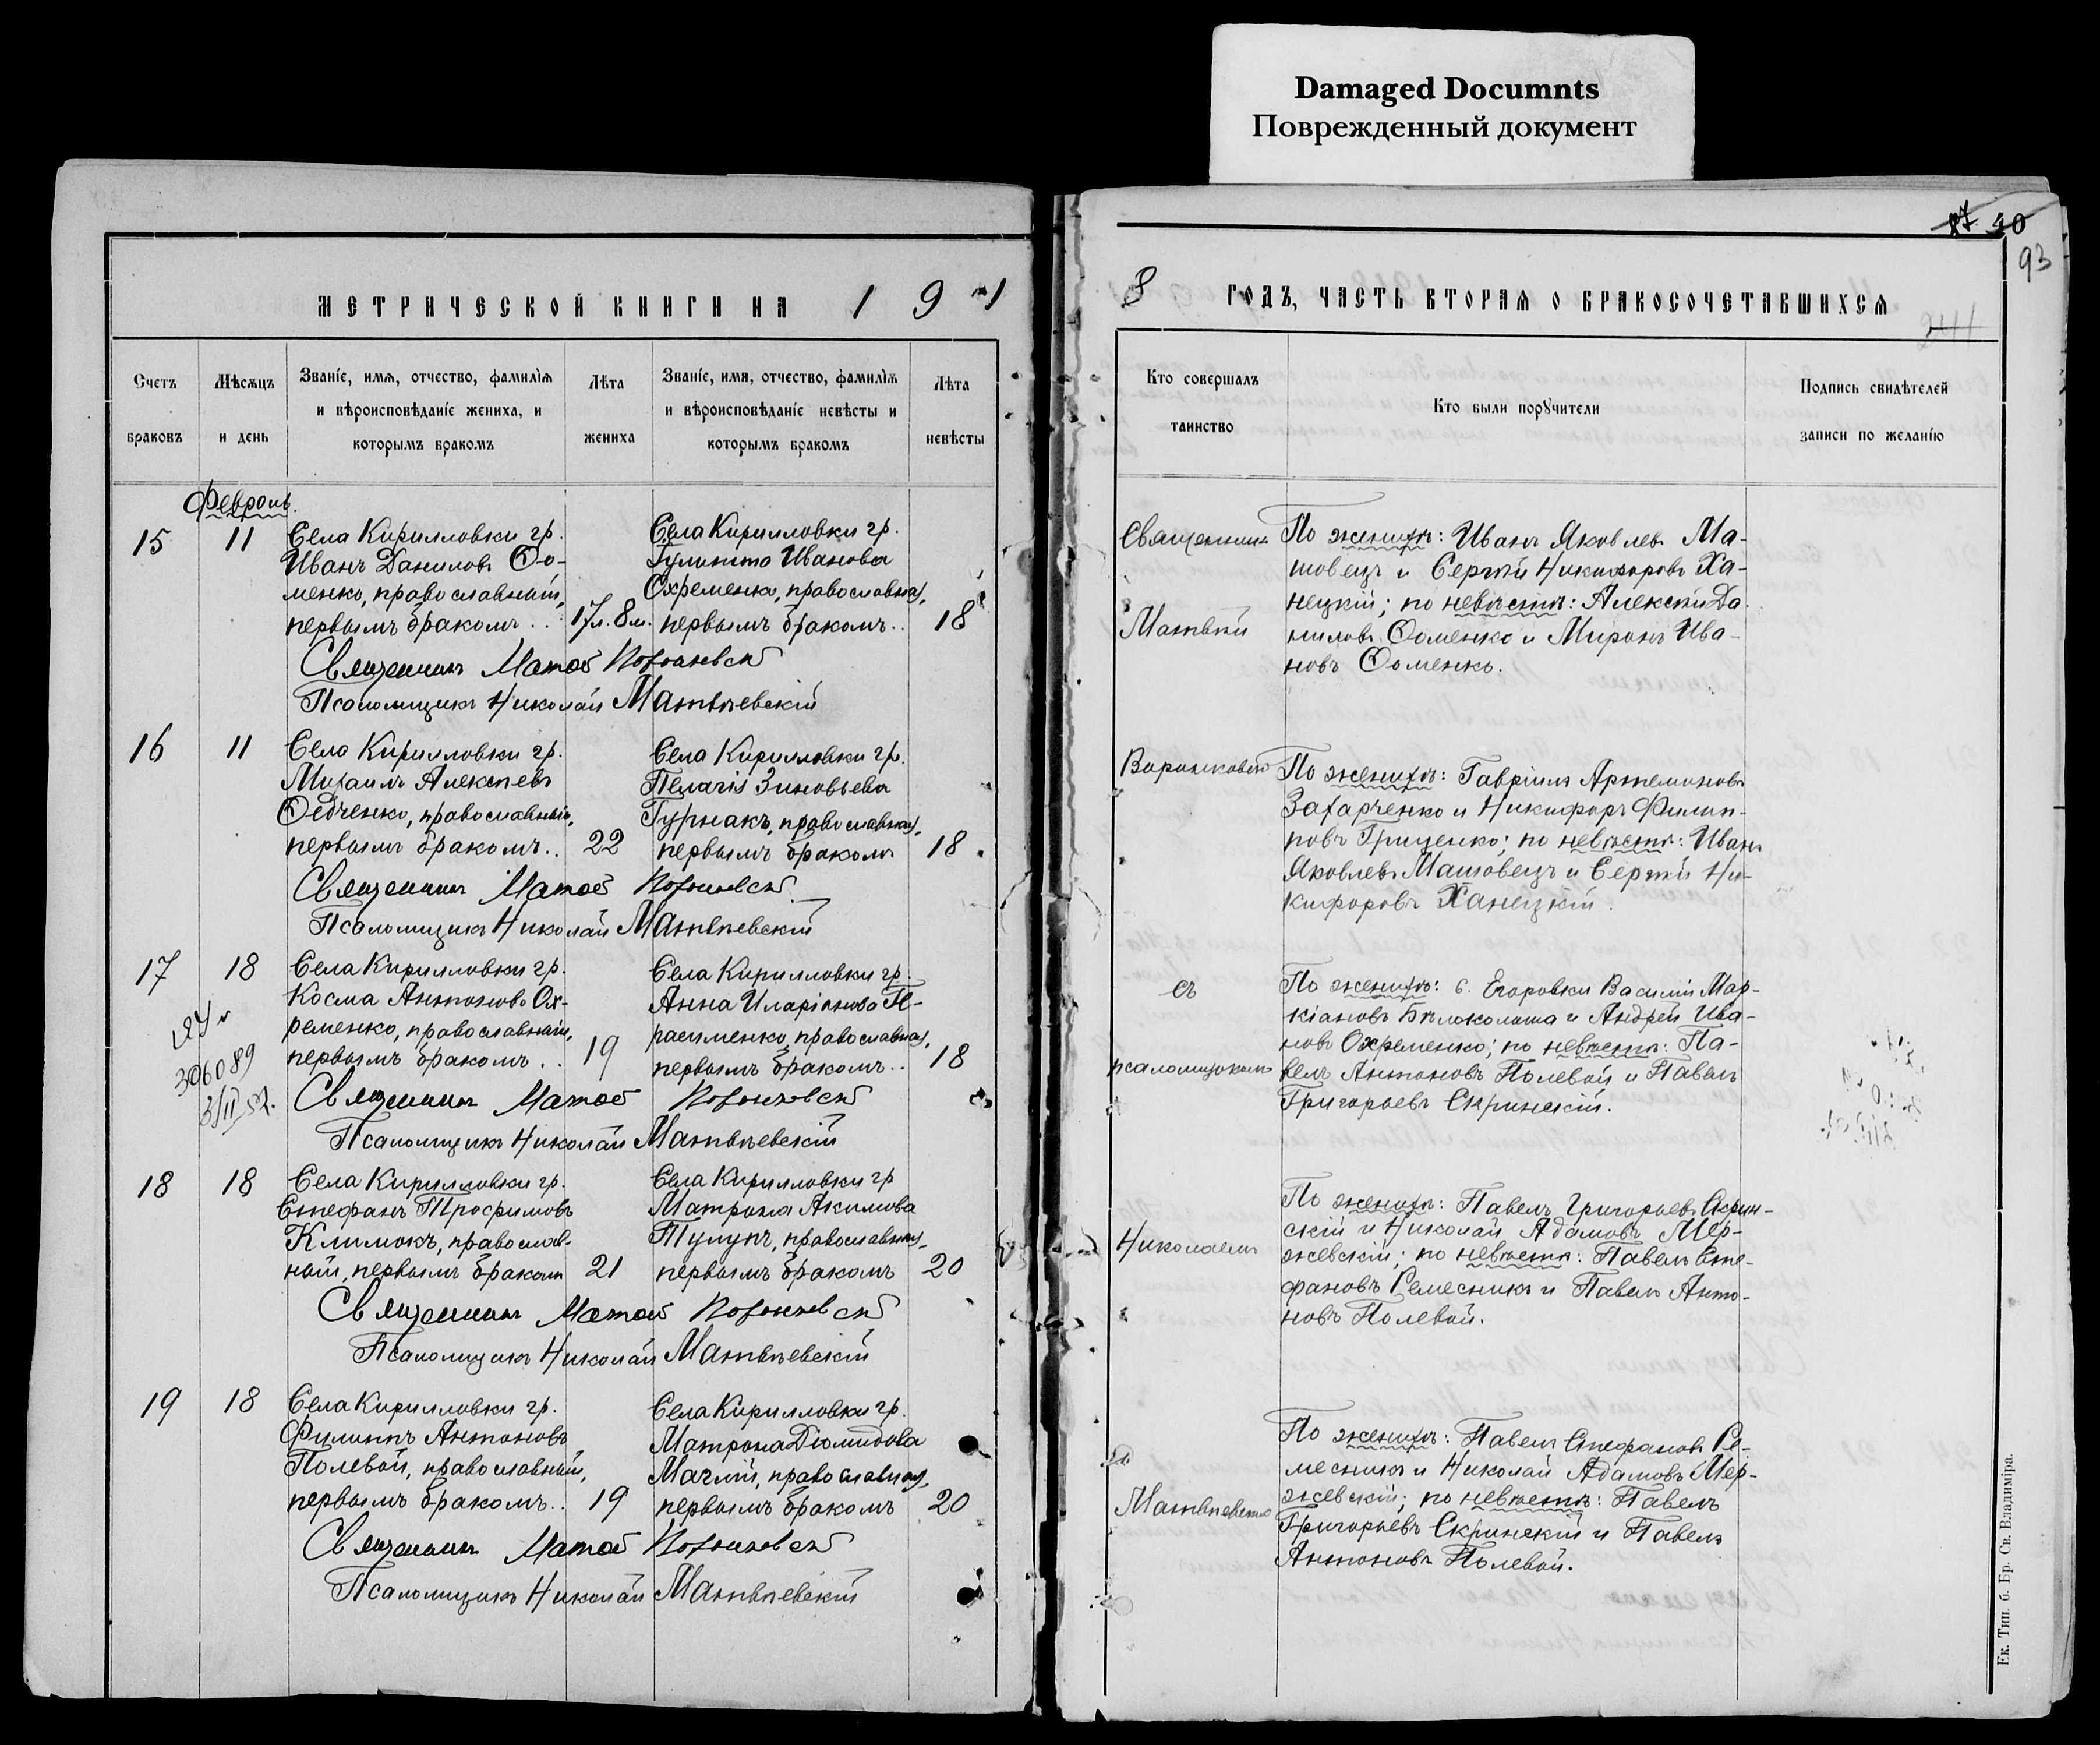 Damaged Documnts
Поврежденный документ
87 40
93
МЕТРИЧЕСКОЙ КНИГИ НА 1 9 1
8 ГОДЪ, ЧАСТЬ ВТОРАЯ О БРАКОСОЧЕТАВШИХСЯ
244
Счетъ браковъ
Мѣсяцъ и день
Званіе, имя, отчество, фамилія
и вѣроисповѣданіе жениха, и
которымъ бракомъ
Лѣта жениха
Званіе, имя, отчество, фамилія
и вѣроисповѣданіе невѣсты и
которымъ бракомъ
Лѣта невѣсты
Кто совершалъ
таинство
Кто были порꙋчители
Подпись свидѣтелей
записи по желанію
Февраль.
15
11
Села Кирилловки гр.
Иванъ Даниловъ Ѳо-
менко, православный,
первымъ бракомъ..
17л. 8м.
Села Кирилловки гр.
Іулитта Иванова
Охременко, православная,
первымъ бракомъ..
18
Священникъ Матѳей
Псаломщикъ Николай Матвѣевскій
16
11
Села Кирилловки гр.
Михаилъ Алексѣевъ
Ѳедченко, православный,
первымъ бракомъ..
22
Села Кирилловки гр.
Пелагія Зиновьева
Гурнакъ, православная,
первымъ бракомъ
18.
Священникъ Матѳей
Псаломщикъ Николай Матвѣевскій
17
18
306089
3/II 52.
Села Кирилловки гр.
Косма Антоновъ Ох-
ременко, православный,
первымъ бракомъ..
19
Села Кирилловки гр.
Анна Иларіонова
православная,
первымъ бракомъ..
18
Священникъ Матѳей
Псаломщикъ Николай Матвѣевскій
18
18
Села Кирилловки гр.
Стефанъ Трофимовъ
Климокъ, православ-
ный, первымъ бракомъ
21
Села Кирилловки гр
Матрона Акимова
Тулупъ, православная,
первымъ бракомъ
20
Священникъ Матѳей
Псаломщикъ Николай Матвѣевскій
19
18
Села Кирилловки гр.
Филиппъ Антоновъ
Полевой, православный,
первымъ бракомъ..
19
Села Кирилловки гр.
Матрона Діомидова
православная,
первымъ бракомъ
20
Священникъ Матѳей
Псаломщикъ Николай Матвѣевскій
Священникъ
Матвѣй
съ
псаломщикомъ
Николаемъ
По женихѣ: Иванъ Яковлевъ Ма-
шовецъ и Сергѣй Никифоровъ Ха-
нецкій; по невѣстѣ: Алексѣй Да-
ниловъ Ѳоменко и Миронъ Ива-
новъ Ѳоменко.
По женихѣ: Гавріилъ Артемоновъ
Захарченко и Никифоръ Филип-
повъ Гриценко; по невѣстѣ: Иванъ
Яковлевъ Машовецъ и Сергѣй Ни-
кифоровъ Ханецкій.
По женихѣ: с. Егоровки Василій Мар-
кіановъ Бѣлоколоша и Андрей Ива-
новъ Охременко; по невѣстѣ: Па-
велъ Антоновъ Полевой и Павелъ
Григорьевъ Скринскій.
По женихѣ: Павелъ Григорьевъ Скрин-
скій и Николай Адамовъ Мер-
жевскій; по невѣстѣ: Павелъ Сте-
фановъ Ремесникъ и Павелъ Анто-
новъ Полевой.
По женихѣ: Павелъ Стефановъ Ре-
месникъ и Николай Адамовъ Мер-
жевскій; по невѣстѣ: Павелъ
Григорьевъ Скринскій и Павелъ
Антоновъ Полевой.
Ек. Тип. б. Бр. Св. Владиміра.